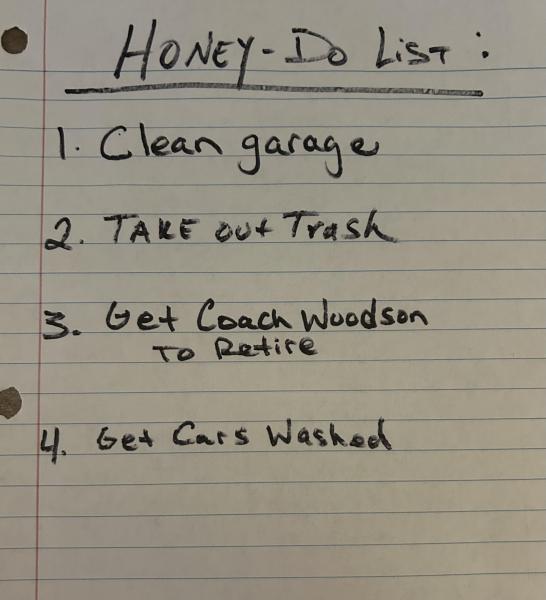 HONEY-DO LIST:
1. Clean garage
2. TAKE out Trash
3. Get Coach Woodson
TO Retire
4. Get Cars Washed